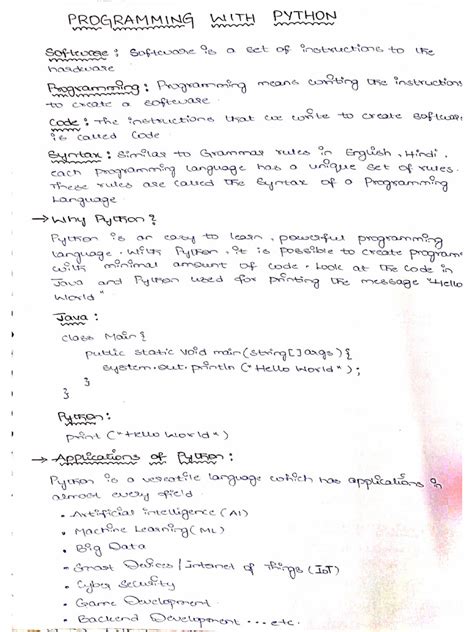 PROGRAMMING WITH PYTHON
Software : Software is a set of instructions to the
hardware
Programming : Programming means writing the instructions
to create a software
Code : The instructions that we write to create software
is called Code
Syntax : Similar to Grammar rules in English, Hindi,
each programming language has a unique set of rules.
These rules are called the Syntax of a Programming
Language
→ Why Python ?
Python is an easy to learn, powerful programming
language. With Python, it is possible to create program
with minimal amount of code. Look at the code in
Java and Python used for printing the message "Hello
World"
Java :
class Main {
public static void main(string[] args) {
system.out.println ("Hello World");
}
}
Python :
print ("Hello World")
→ Applications of Python :
Python is a versatile language which has applications in
almost every field
• Artificial intelligence (AI)
• Machine Learning (ML)
• Big Data
• Smart Devices / Internet of Things (IoT)
• Cyber Security
• Game Development
• Backend Development ... etc.